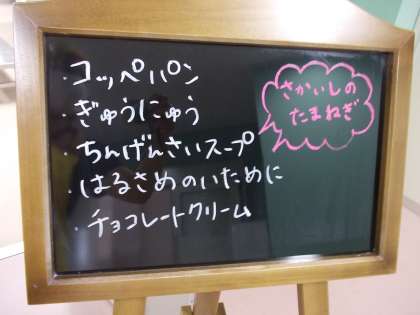 ・コッペパン
・ぎゅうにゅう
・ちんげんさいスープ
・はるさめのいために
・チョコレートクリーム
さかいしの
たまねぎ